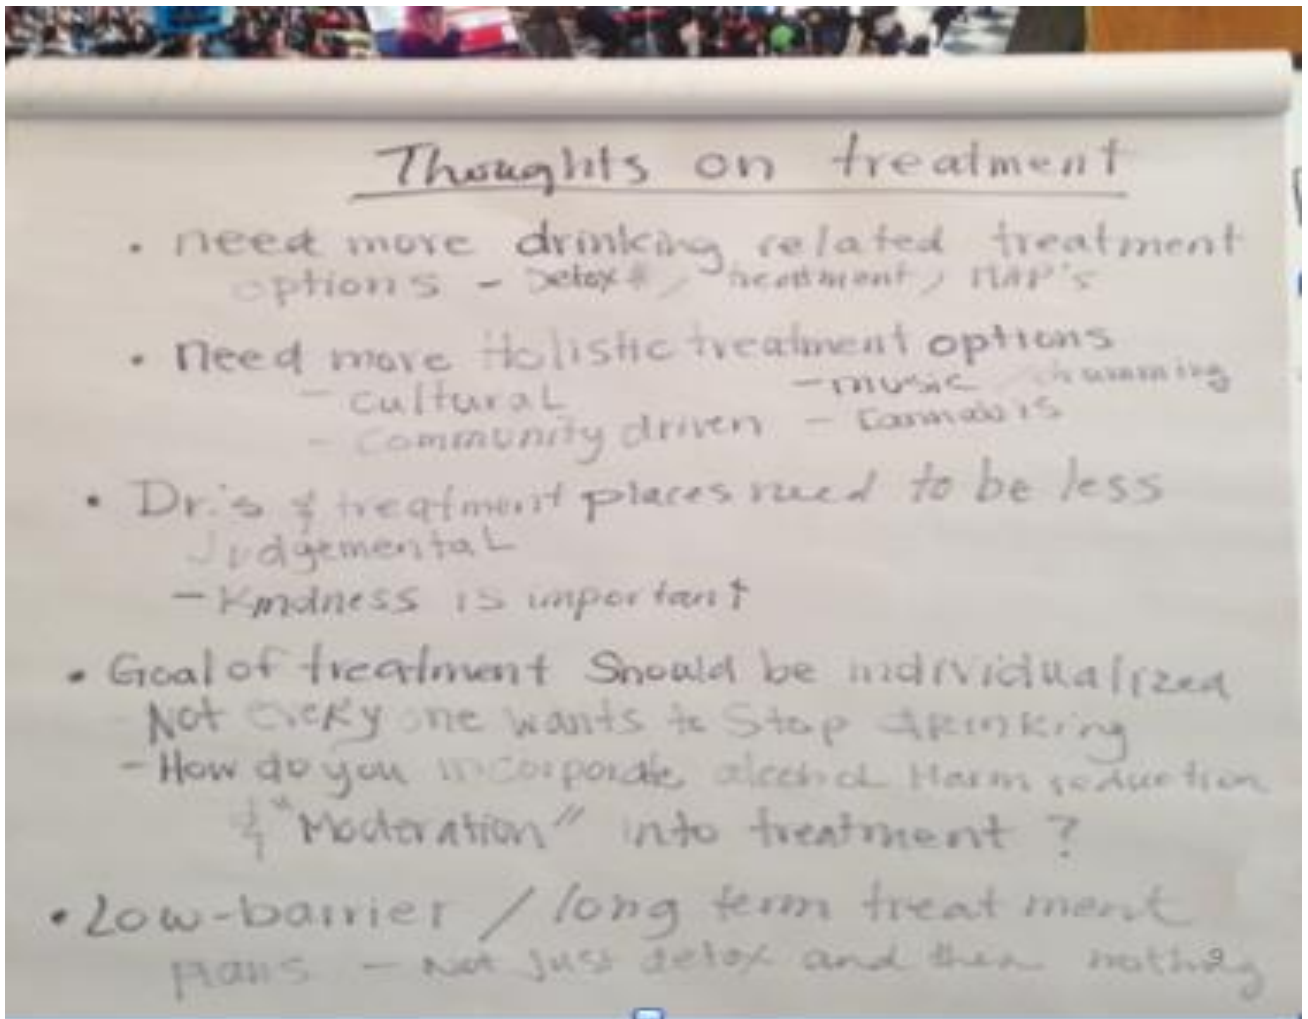 Thoughts on treatment
• need more drinking related treatment
options - Detox, treatment, MAP's
• need more Holistic treatment options
- cultural - music / drumming
- Community driven - Cannabis
• Dr.'s & treatment places need to be less
Judgemental
- Kindness is important
• Goal of treatment Should be individualized
- Not every one wants to Stop drinking
- How do you incorporate alcohol Harm reduction
& "Moderation" into treatment ?
• Low-barrier / long term treatment
plans - Not just detox and then nothing